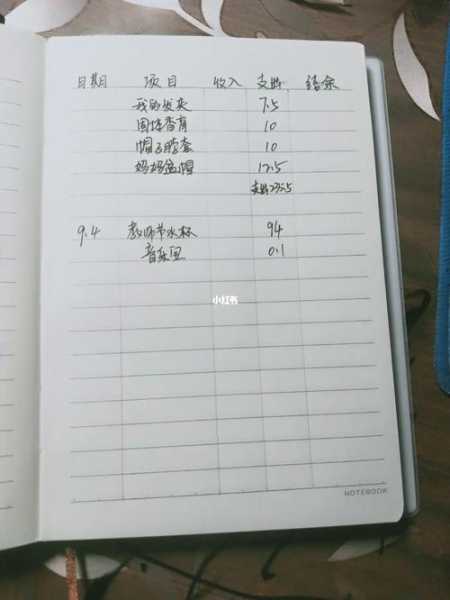 日期 项目 收入 支出 结余
我的发夹 7.5
10
帽子脖套 10
妈妈 帽 12.5
支出
9.4 教师节水杯 94
音乐 0.1
小红书
NOTEBOOK